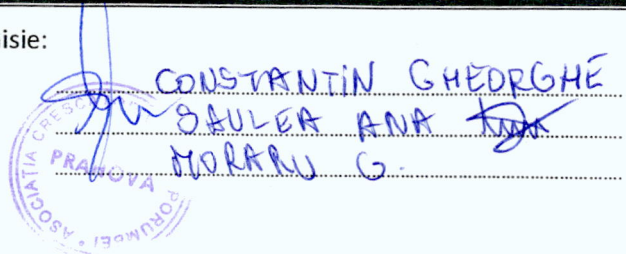 isie:
CONSTANTIN GHEORGHE
SAULEA ANA
MORARU G.
ASOCIATIA CRESC PORUMBEI
PRAHOVA